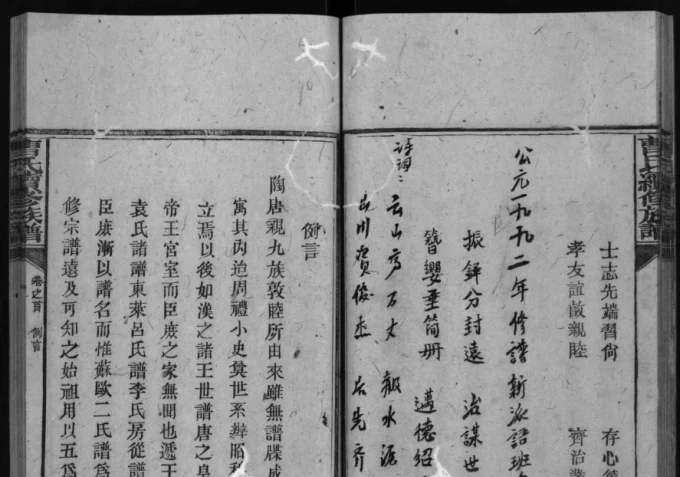 曹氏續修族譜
士志先端習尙 存心
孝友誼敵親睦 齊治
公元一九九二年修譜新派語班
振鐸分封遠 治謀世
簪纓垂简册 邁德紹
诗词:
云山高万丈 報水源
吉川資俊杰 先齐
例言
陶唐親九族敦睦所由來雖無譜牒成
寓其內迨周禮小史奠世系辨昭穆
立焉以後如漢之諸王世譜唐之皇
帝王宮室而臣庶之家無聞也遞王
袁氏諸譜東萊呂氏譜李氏房從譜
臣庶漸以譜名而惟蘇歐二氏譜爲
修宗譜遠及可知之始祖用以五爲
曹氏續修族譜
卷之首 例言